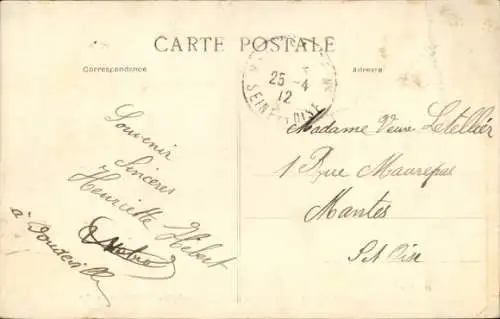 CARTE POSTALE
Correspondance
Adresse
25 -4
12
SEINE-ET-OISE
Souvenir
Sincères
Henriette Hébert
à Doudeville
Madame Veuve Letellier
1 Rue Maurepas
Mantes
S et Oise